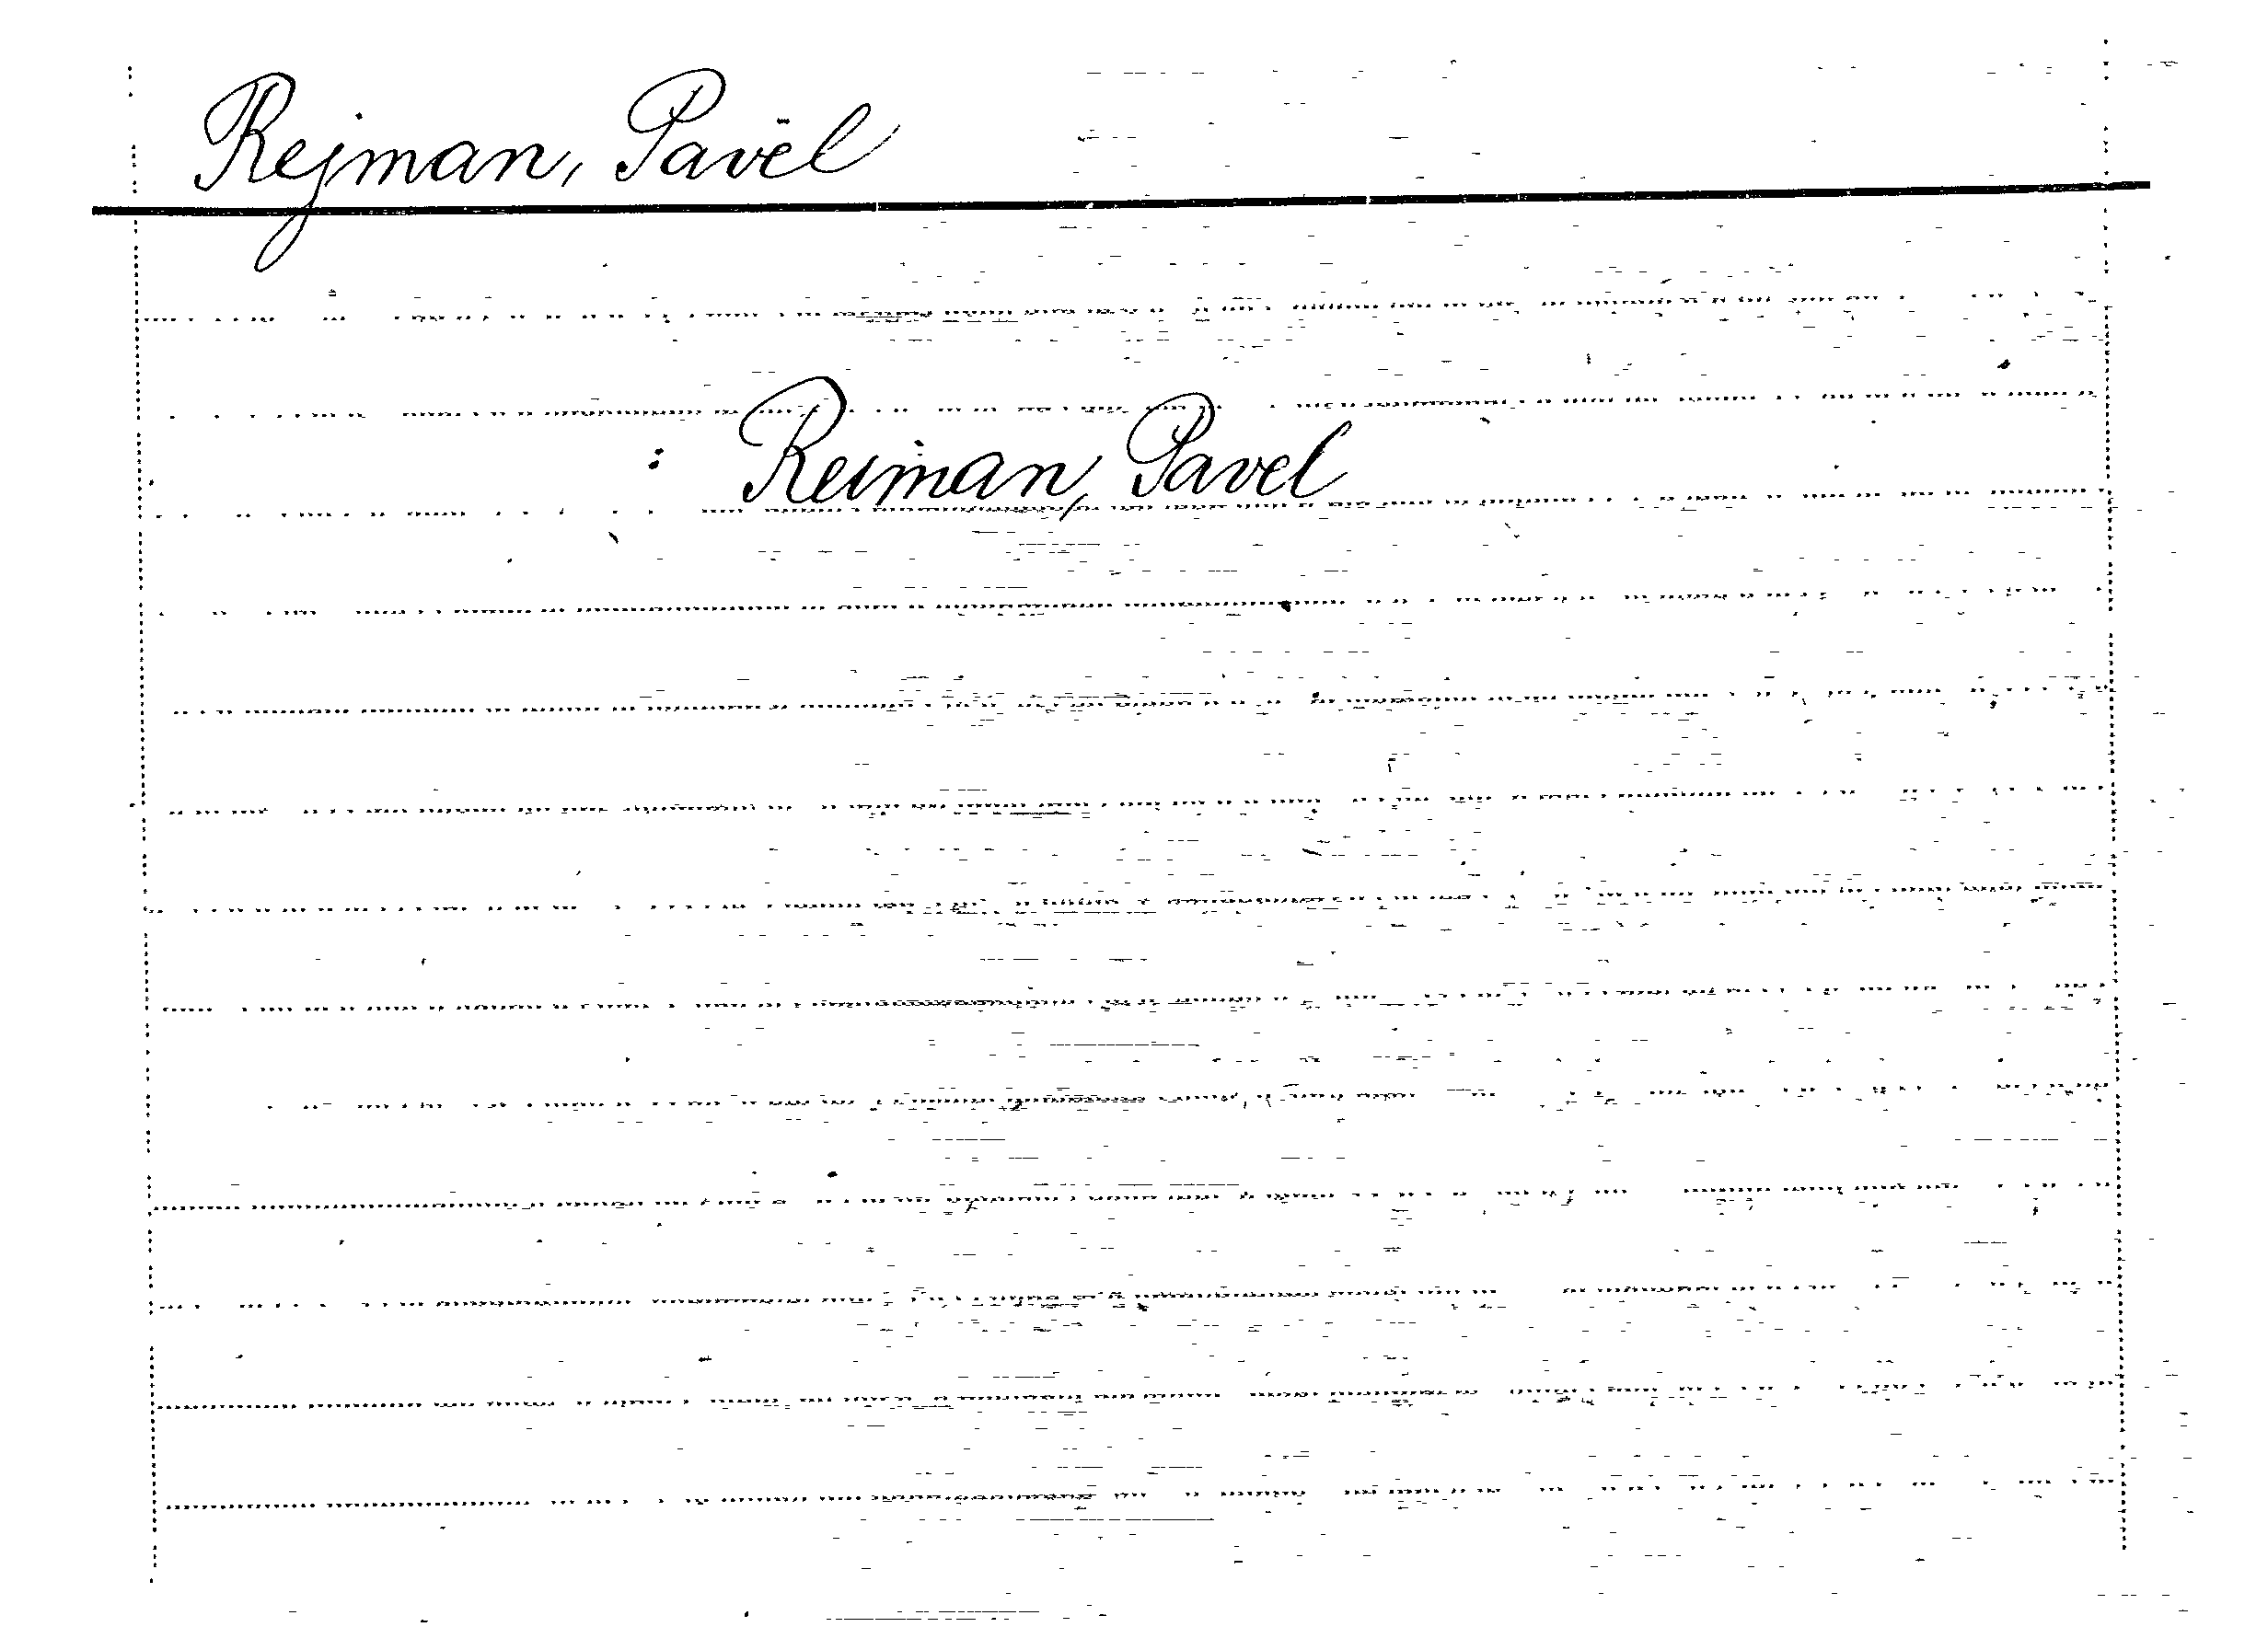 Rejman, Pavel
: Reiman, Pavel